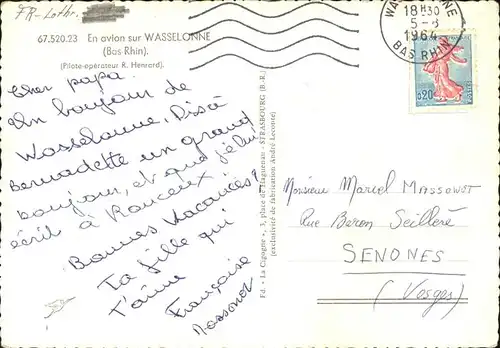 FR-Lothr.
67.520.23 En avion sur WASSELONNE
(Bas Rhin)
(Pilote-opérateur R. Henrard).
Cher papa.
Un bonjour de
Wasselonne, Dis à
Bernadette un grand
bonjour, et que je lui
écrit à Ranceux
Bonnes Vacances!
Ta fille qui
t'aime
Françoise
Massonet
Ed. "La Cigogne", 3, place de Haguenau - STRASBOURG (B.-R.)
(exclusivité de fabrication André Leconte)
WASSELONNE
18H30
5-8
1964
BAS RHIN
0,20
POSTES
Monsieur Marcel MASSONET
Rue Beron Seillère
SENONES
(Vosges)